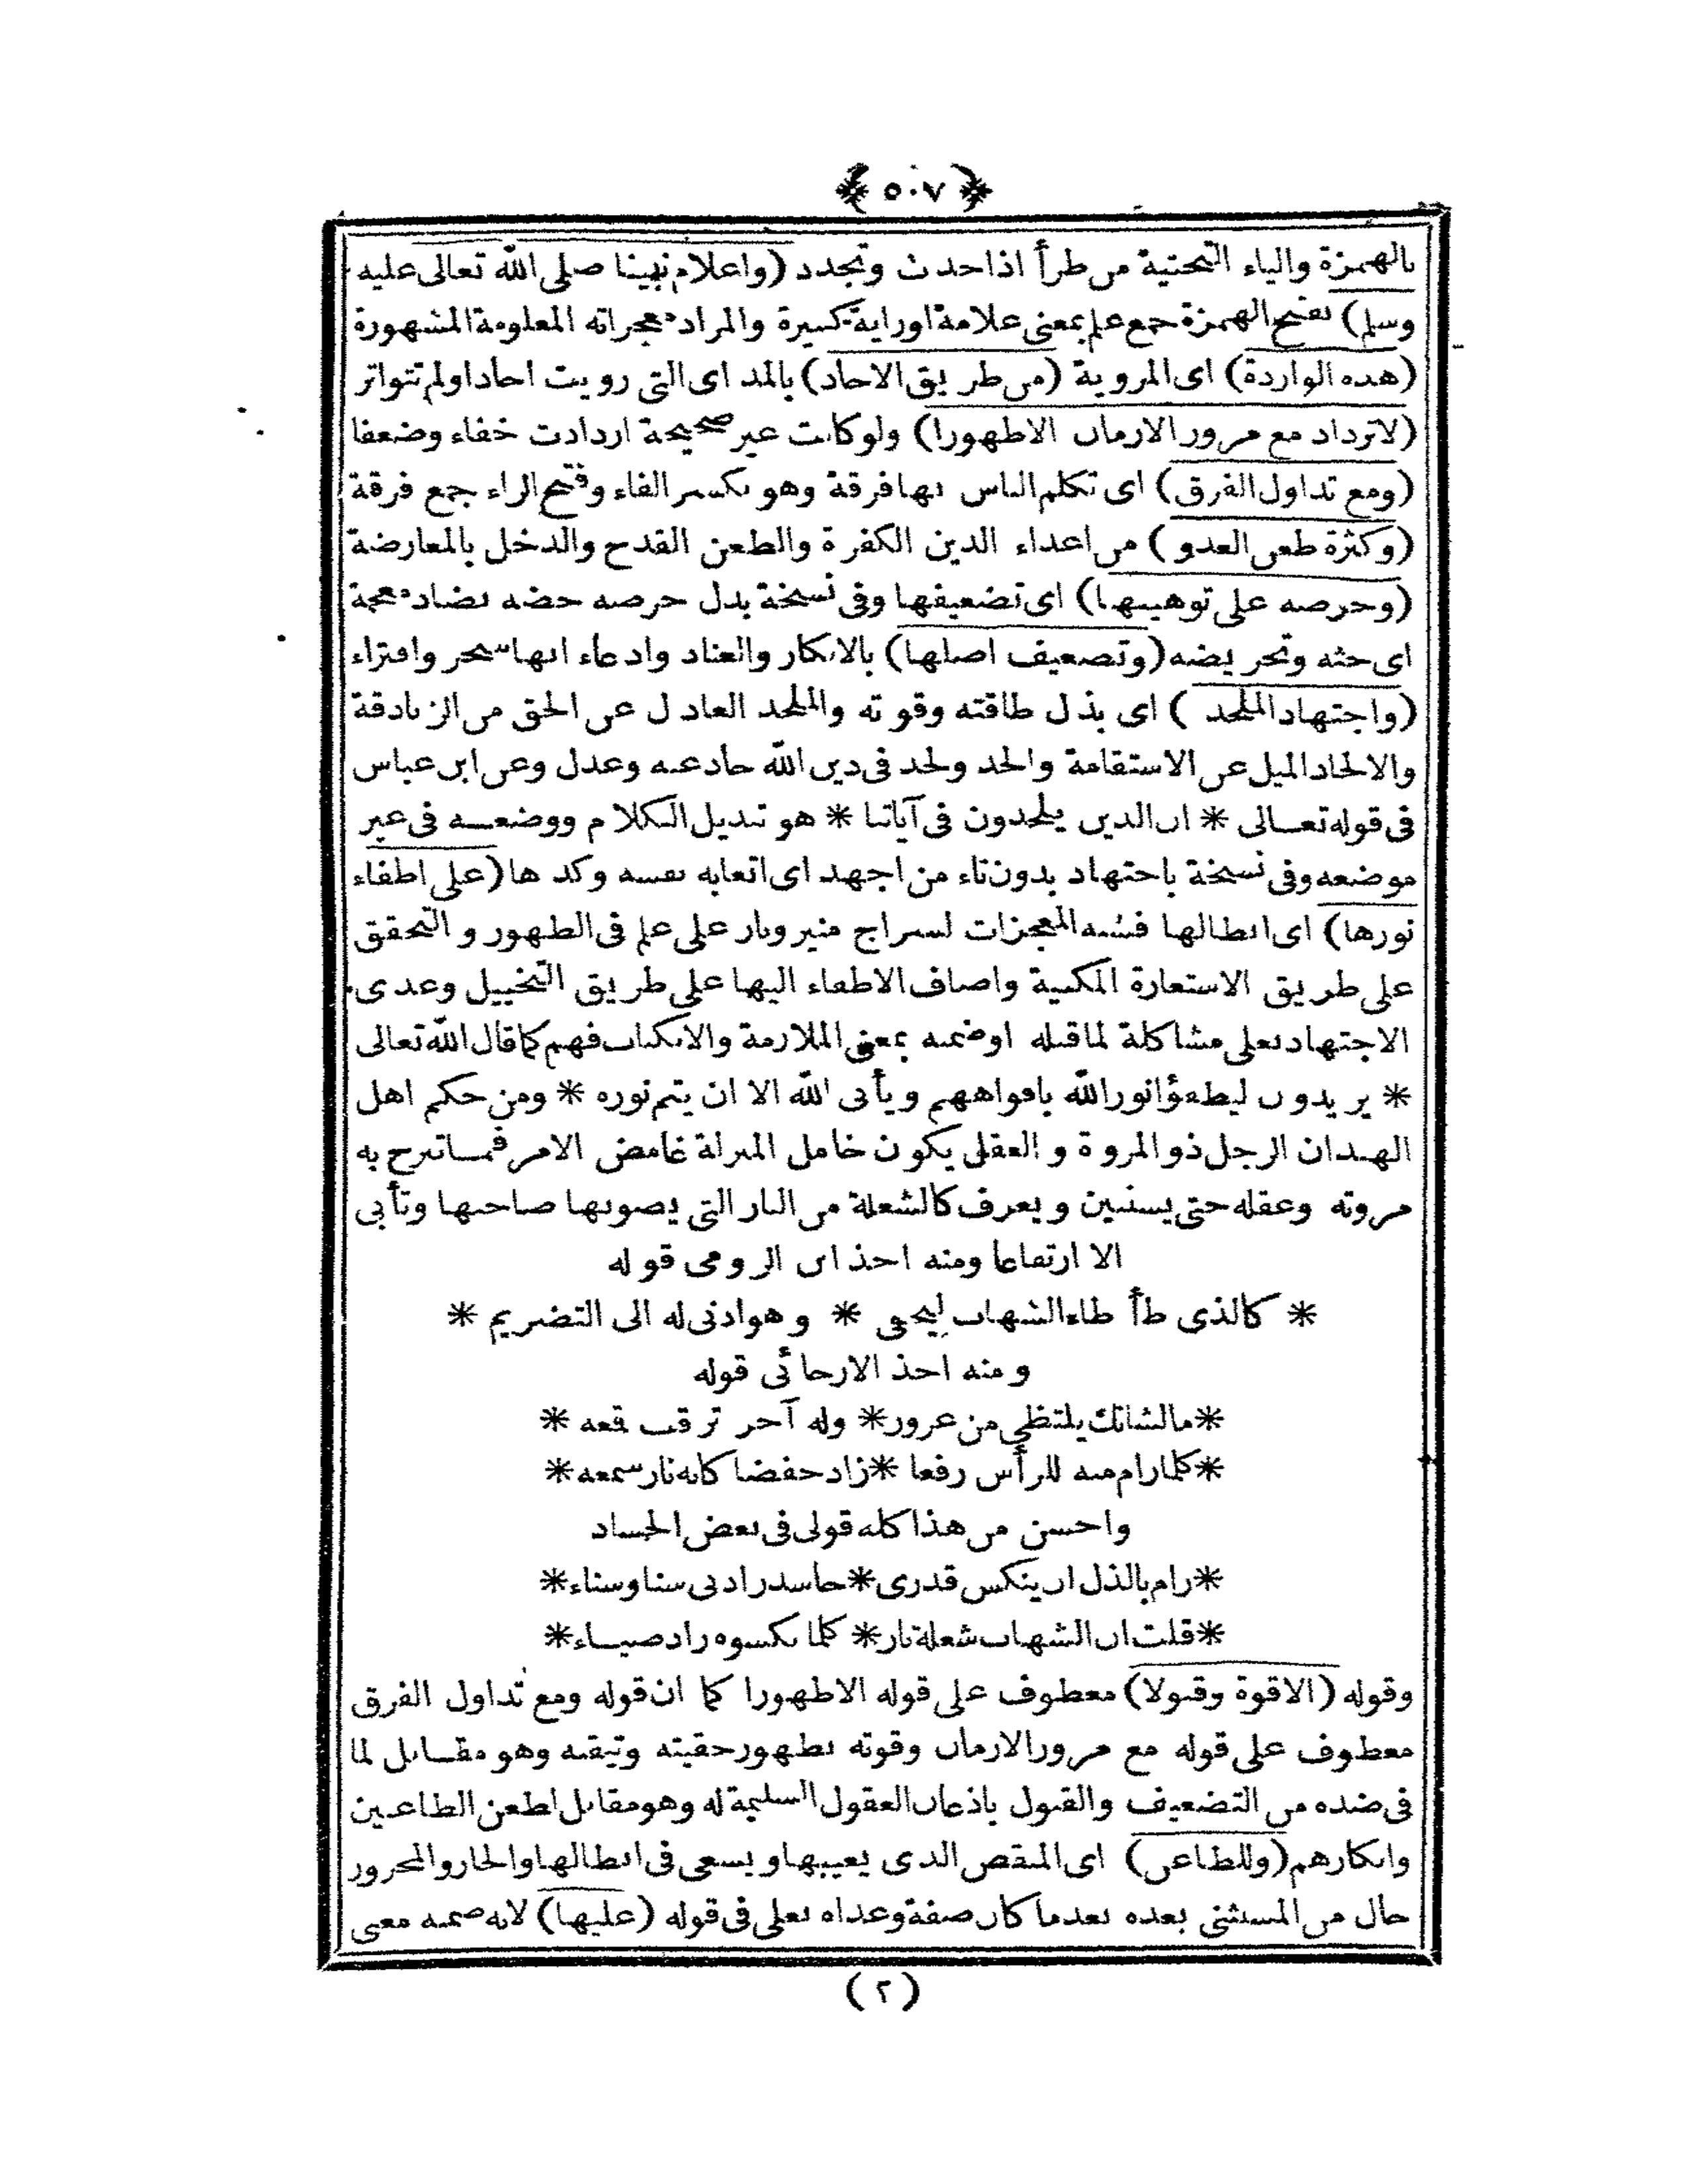 ﴿ ٥٠٧ ﴾
بالهمزة والياء التحتية من طرأ اذا حدث وتجدد (واعلام نبينا صلى الله تعالى عليه
وسلم) بفتح الهمزة جمع علم بمعنى علامة اوراية كبيرة والمراد معجزاته المعلومة المشهورة
(هذه الواردة) اى المروية (من طريق الاحاد) بالمد اى التى رويت احادا ولم تتواتر
(لاتزداد مع مرور الازمان الاظهورا) ولوكانت غير صحيحة ازدادت خفاء وضعفا
(ومع تداول الفرق) اى تكلم الناس بها فرقة وهو بكسر الفاء وفتح الراء جمع فرقة
(وكثرة طعن العدو) من اعداء الدين الكفرة والطعن القدح والدخل بالمعارضة
(وحرصه على توهينها) اى تضعيفها وفى نسخة بدل حرصه حضه بضاد معجمة
اى حثه وتحريضه (وتضعيف اصلها) بالانكار والعناد وادعاء انها سحر وافتراء
(واجتهاد الملحد) اى بذل طاقته وقوته والملحد العادل عن الحق من الزنادقة
والالحاد الميل عن الاستقامة والحد ولحد فى دين الله حاد عنه وعدل وعن ابن عباس
فى قوله تعـالى * ان الذين يلحدون فى آياتنا * هو تبديل الكلام ووضعـه فى غير
موضعه وفى نسخة باجتهاد بدون تاء من اجهد اى اتعابه نفسه وكدها (على اطفاء
نورها) اى ابطالها فشبه المعجزات لسراج منير ونار على علم فى الظهور والتحقق
على طريق الاستعارة المكنية واضاف الاطفاء اليها على طريق التخييل وعدى
الاجتهاد بعلى مشاكلة لماقبله اوضمنه بمعنى الملازمة والانكباب فهم كماقال الله تعالى
* يريدون ليطفؤا نور الله بافواههم ويأبى الله الا ان يتم نوره * ومن حكم اهل
الهـدان الرجل ذو المروة والعقل يكون خامل المنزلة غامض الامر فمـا تبرح به
مروته وعقله حتى يستبين ويعرف كالشعلة من النار التى يصوبها صاحبها وتأبى
الا ارتفاعا ومنه اخذ ابن الرومى قوله
* كالذى طأطاء الشهاب ليخفى * وهوادنى له الى التضريم *
ومنه اخذ الارجائى قوله
*مالشانك يلتظى من غرور* وله آخر ترقب قمعه *
*كلمارام منه للرأس رفعا *زاد خفضا كانه نار سمعه*
واحسن من هذا كله قولى فى بعض الحساد
*رام بالذل ان ينكس قدرى*حاسد زادنى سنا وسناء*
*قلت ان الشهاب شعلة نار* كلما نكسوه زاد ضيـاء*
وقوله (الاقوة وقبولا) معطوف على قوله الاظهورا كما ان قوله ومع تداول الفرق
معطوف على قوله مع مرور الازمان وقوته بظهور حقيته وتيقنه وهو مقـابل لما
فى ضده من التضعيف والقبول باذعان العقول السليمة له وهو مقابل لطعن الطاعـين
وانكارهم (وللطاعن) اى المنقص الذى يعيبها ويسعى فى ابطالها والجار والمجرور
حال من المستثنى بعده بعدما كان صفة وعداه بعلى فى قوله (عليها) لانه ضمنه معنى
(٢)